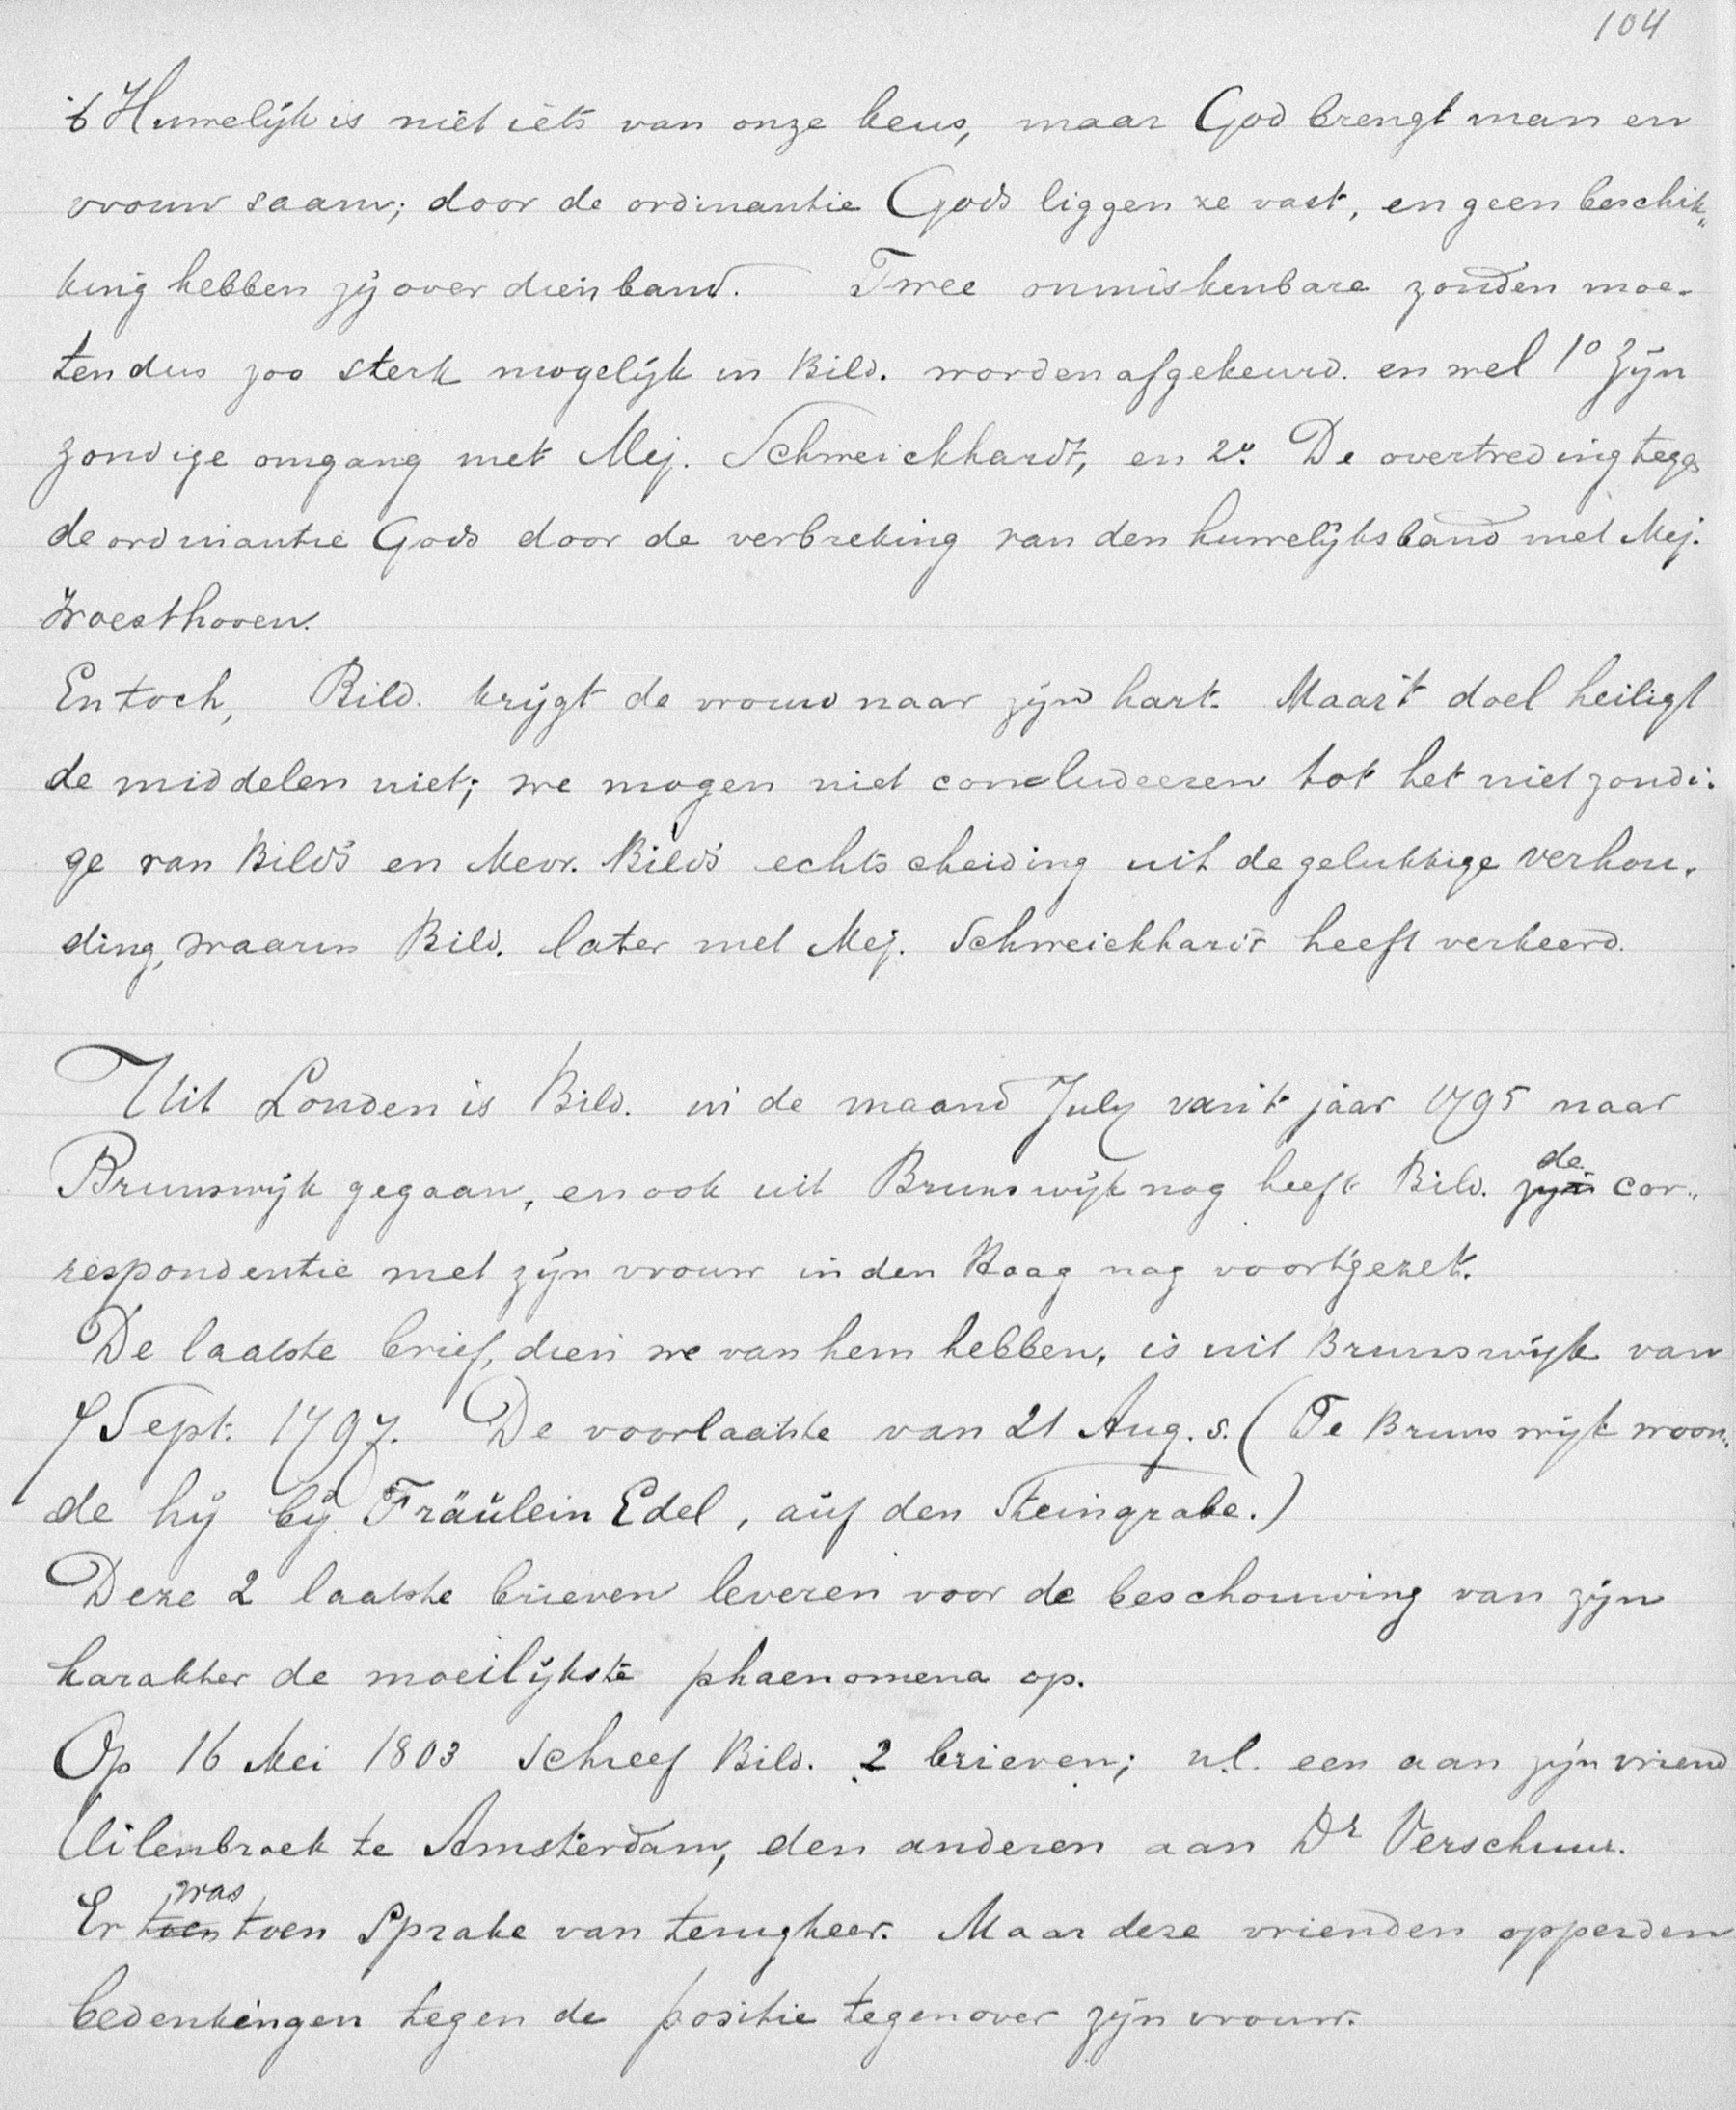 104
't Huwelijk is niet iets van onze keus, maar God brengt man en
vrouw saam; door de ordinantie Gods liggen ze vast, en geen beschik„
king hebben zij over dien band. Twee onmiskenbare zonden moe-
ten dus zoo sterk mogelijk in Bild. worden afgekeurd. en wel 1o Zijn
zondige omgang met Mej. Schweickhardt, en 2o. De overtreding tegen
de ordinantie Gods door de verbreking van den huwelijksband met Mej.
Woesthoven.
En toch, Bild. krijgt de vrouw naar zijn hart. Maar 't doel heiligt
de middelen niet; we mogen niet concludeeren tot het niet zondi-
ge van Bild's en Mevr. Bild's echtscheiding uit de gelukkige verhou-
ding, waarin Bild. later met Mej. Schweickhardt heeft verkeerd.
Uit Londen is Bild. in de maand July van 't jaar 1795 naar
Brunswijk gegaan, en ook uit Brunswijk nog heeft Bild. zijn de cor„
respondentie met zijn vrouw in den Haag nog voortgezet.
De laatste brief, dien we van hem hebben, is uit Brunswijk van
7 Sept. 1797. De voorlaatste van 21 Aug. s. (Te Brunswijk woon-
de hij bij Fräulein Edel, auf den Steingrabe.)
Deze 2 laatste brieven leveren voor de beschouwing van zijn
karakter de moeilijkste phaenomena op.
Op 16 Mei 1803 schreef Bild. 2 brieven; n.l. een aan zijn vriend
Uilenbroek te Amsterdam, den anderen aan Dr Verschuur.
Er toen was toen Sprake van terugkeer. Maar deze vrienden opperden
bedenkingen tegen de positie tegenover zijn vrouw.